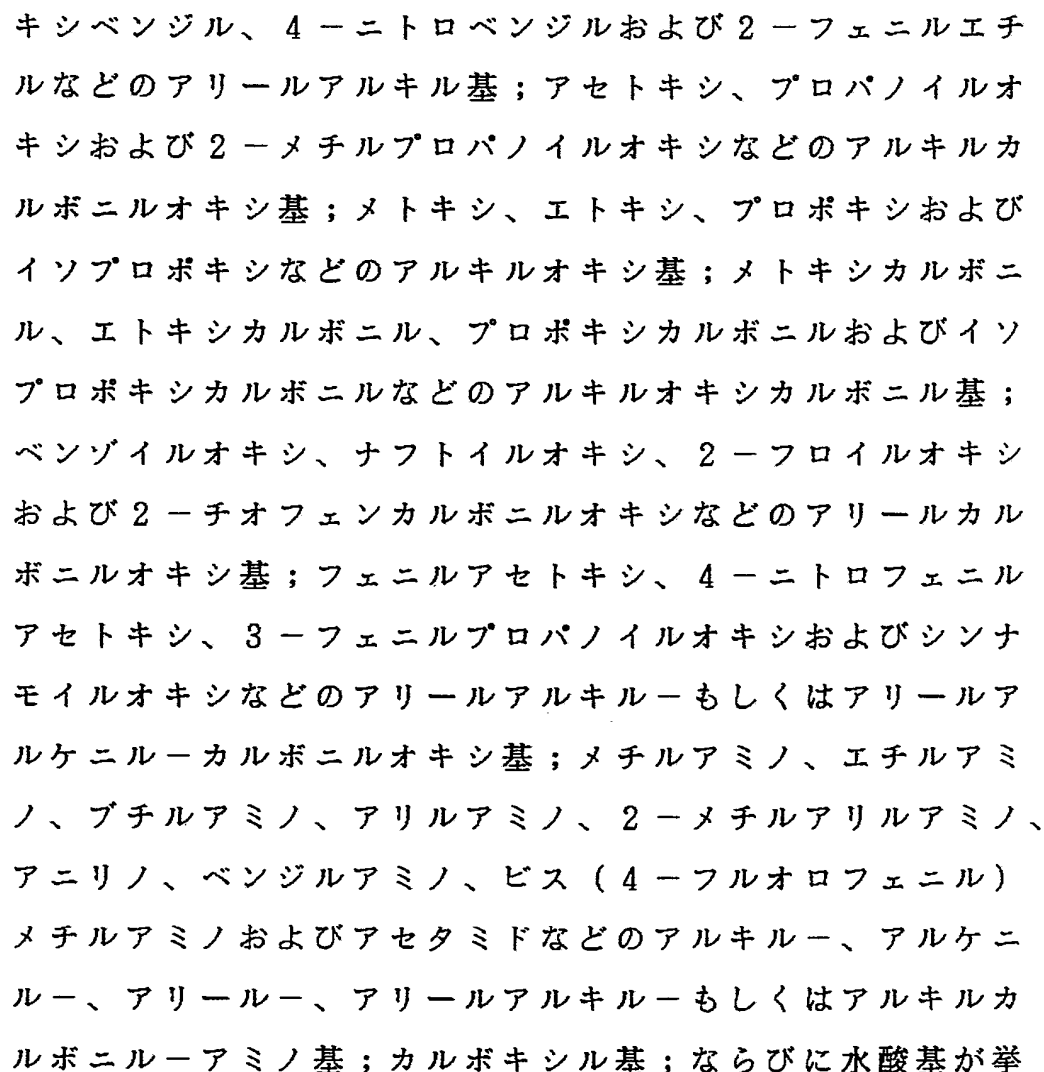 キシベンジル、4－ニトロベンジルおよび2－フェニルエチ
ルなどのアリールアルキル基；アセトキシ、プロパノイルオ
キシおよび2－メチルプロパノイルオキシなどのアルキルカ
ルボニルオキシ基；メトキシ、エトキシ、プロポキシおよび
イソプロポキシなどのアルキルオキシ基；メトキシカルボニ
ル、エトキシカルボニル、プロポキシカルボニルおよびイソ
プロポキシカルボニルなどのアルキルオキシカルボニル基；
ベンゾイルオキシ、ナフトイルオキシ、2－フロイルオキシ
および2－チオフェンカルボニルオキシなどのアリールカル
ボニルオキシ基；フェニルアセトキシ、4－ニトロフェニル
アセトキシ、3－フェニルプロパノイルオキシおよびシンナ
モイルオキシなどのアリールアルキル－もしくはアリールア
ルケニル－カルボニルオキシ基；メチルアミノ、エチルアミ
ノ、ブチルアミノ、アリルアミノ、2－メチルアリルアミノ、
アニリノ、ベンジルアミノ、ビス(4－フルオロフェニル)
メチルアミノおよびアセタミドなどのアルキル－、アルケニ
ル－、アリール－、アリールアルキル－もしくはアルキルカ
ルボニル－アミノ基；カルボキシル基；ならびに水酸基が挙